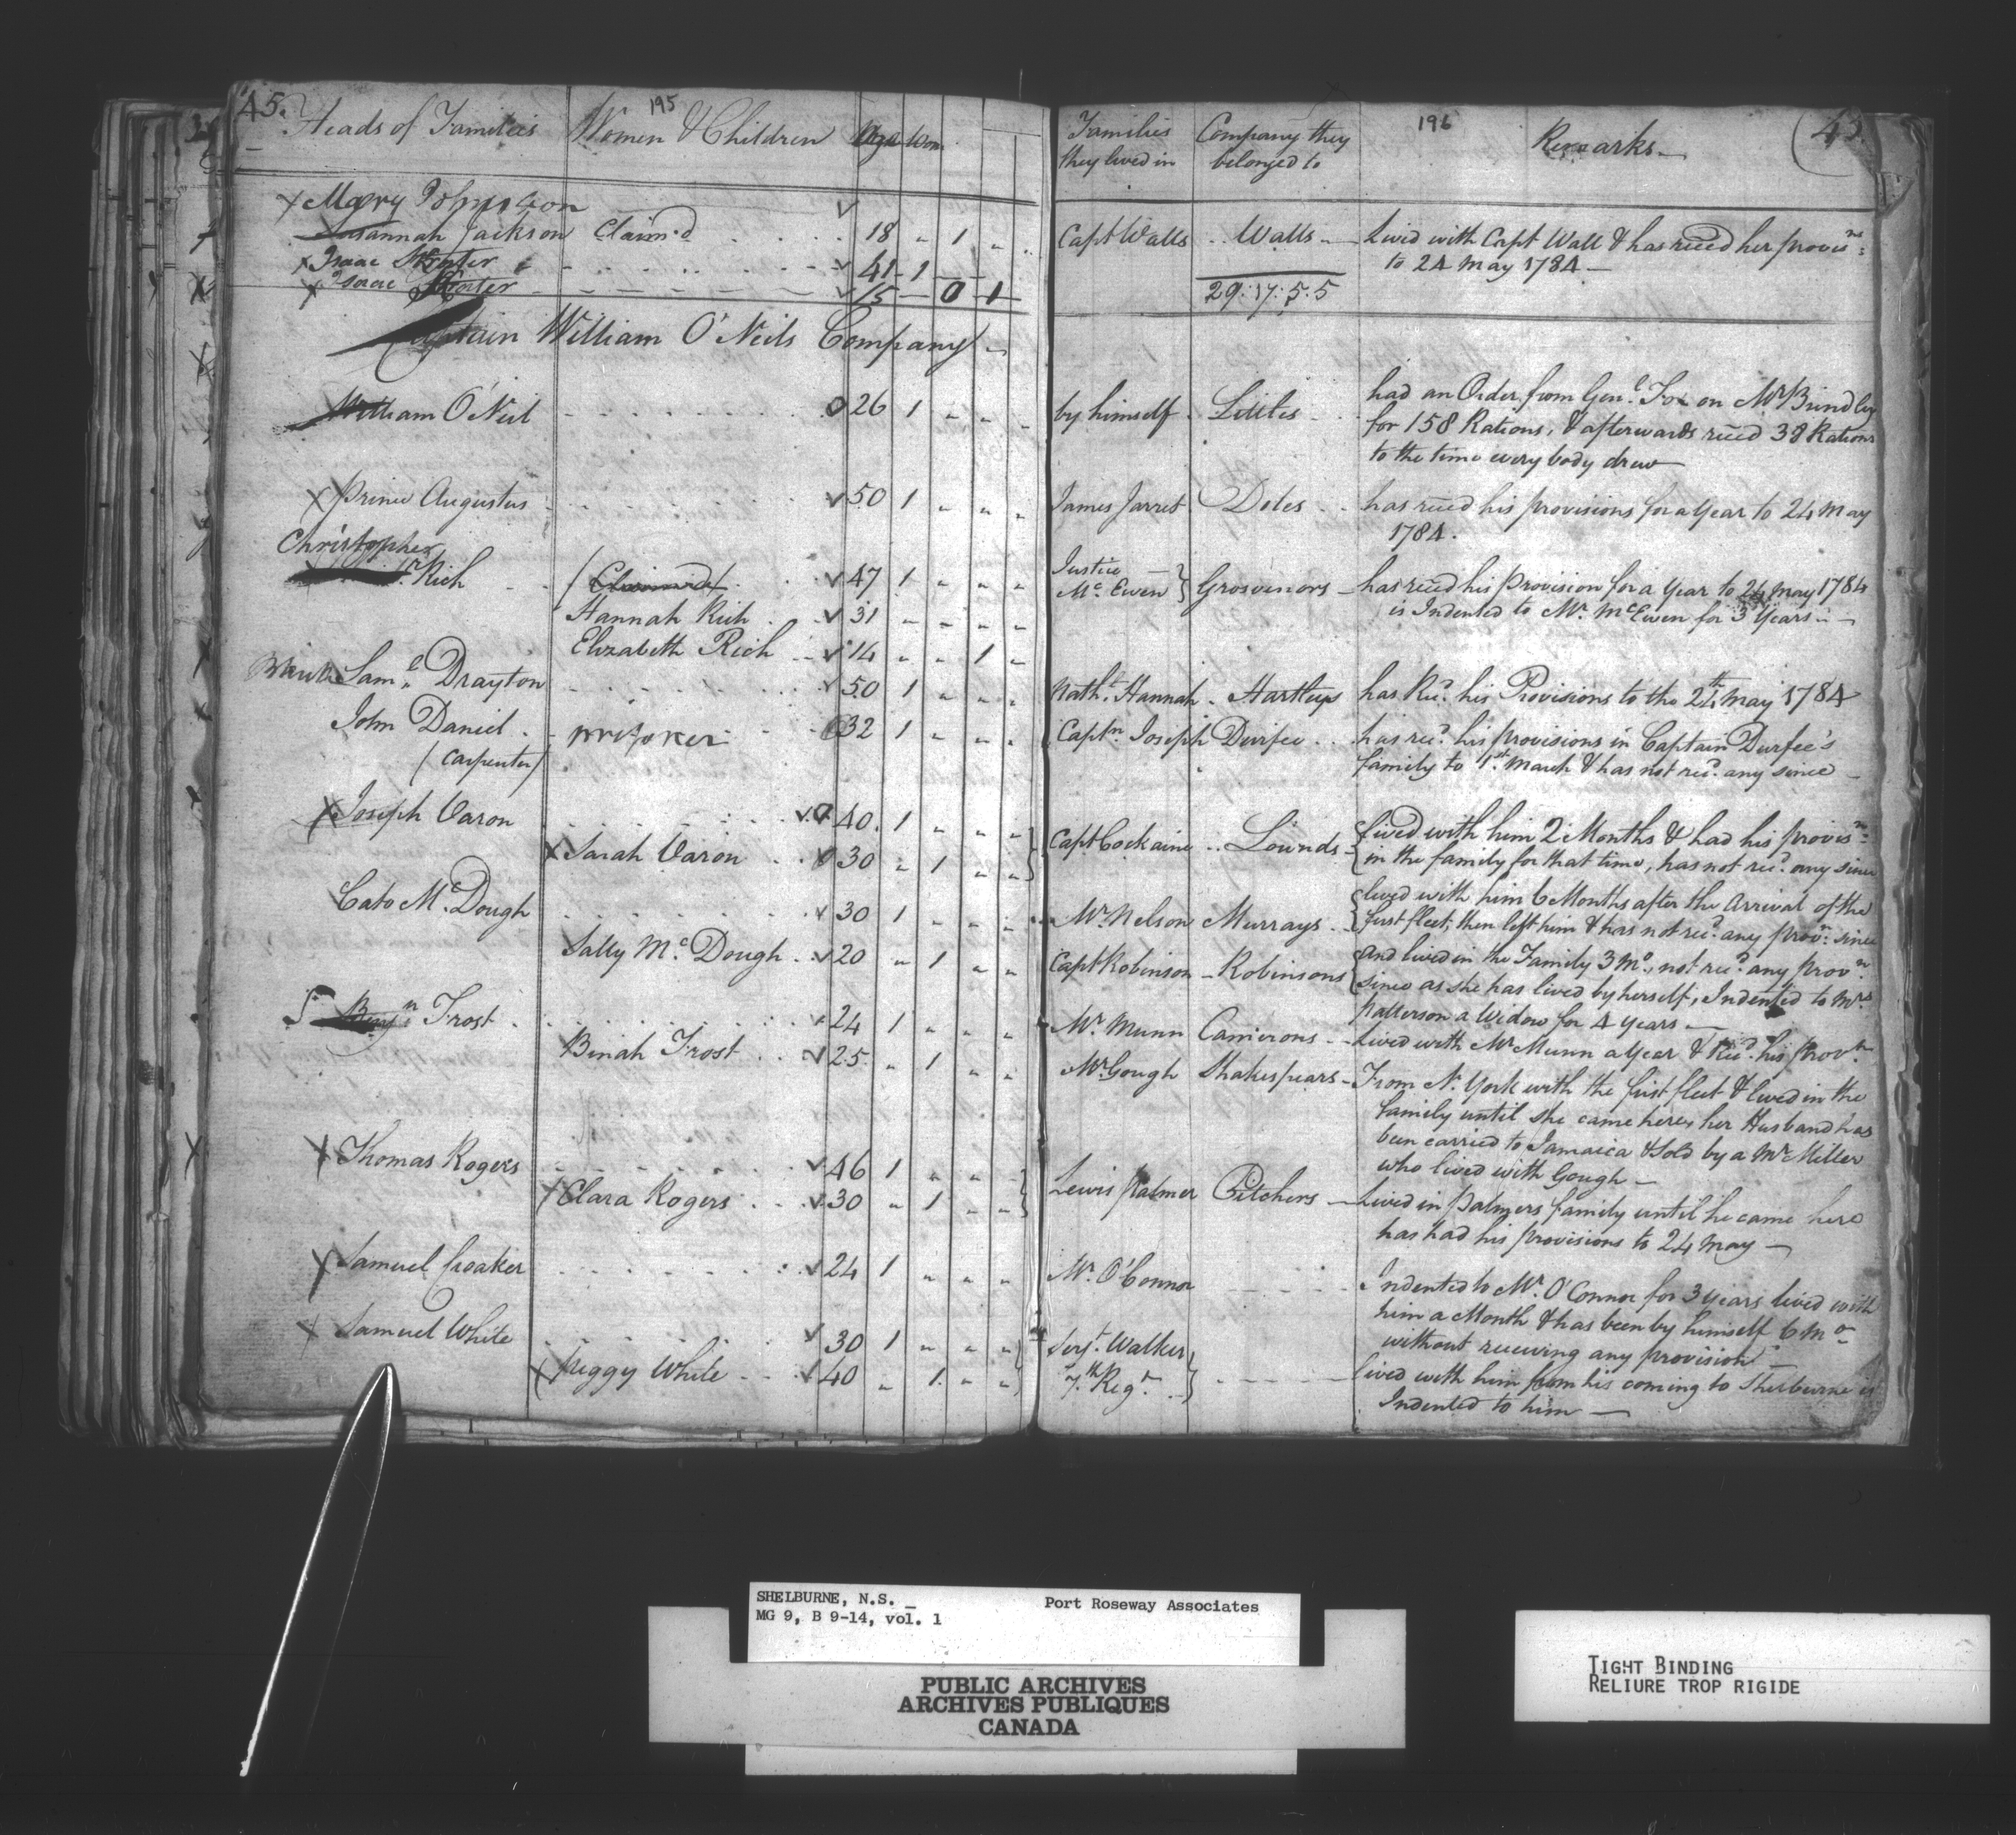 45. Heads of Families Women & Children 195 Age Wom
× Mary Johnson
Susannah Jackson Claim'd 18 " 1 "
× Isaac 41 - 1
× Isaac 15 - 0 - 1
Captain William O'Neils Company
William O'Neil 0 26 1 " " "
× Prince Augustus √ 50 1 " " "
Christopher
Rich (Claimed) √ 47 1 " " "
Hannah Rich √ 31 " " " "
Elizabeth Rich √ 14 " " 1 "
Sam.l Drayton √ 50 1 " " "
John Daniel 32 1 " " "
(Carpenter)
× Joseph Varon √ 0 40 1 " " "
× Sarah Varon 0 30 " 1 " "
Cato Mc.Dough √ 30 1 " " "
Sally Mc. Dough √ 20 " 1 " "
Benj.n Frost 24 1 " " "
Binah Frost √ 25 " 1 " "
× Thomas Rogers √ 46 1 " " "
× Clara Rogers √ 30 " 1 " "
× Samuel Croaker √ 24 1 " " "
× Samuel White √ 30 1 " " "
Peggy White √ 40 " 1 " "
Families Company they 196 Remarks 45.
they lived in belonged to
Capt Walls Walls Lived with Capt Wall & has reced her provis.ns
to 24 May 1784
29:17:5:5
by himself had an Order from Gen.l Fox on Mr Brindley
for 158 Rations, & afterwards reced 38 Rations
to the time every body drew
James Jarret Doles has reced his provisions for a year to 24 May
1784.
Justice
Mc. Ewen } Grosvenors has reced his Provision for a year to 24 May 1784
is Indented to Mr. McEwen for 3 Years
Nath.l Hannah Hartleys has Rec.d his Provisions to the 24th May 1784
Capt.n Joseph Durfee has rec.d his provisions in Captain Durfee's
family to 1st. March & has not rec.d any since
Capt Cockaine Lownds { lived with him 2 Months & had his provis.ns
in the family for that time, has not rec.d any since
Mr. Nelson Murrays { lived with him 6 Months after the Arrival of the
first fleet, then left him & has not rec.d any prov.n since
Capt Robinson Robinsons { and lived in the Family 3 Mo., not rec.d any prov.n
since as she has lived by herself, Indented to Mrs
Patterson a Widow for 4 years
Mr. Munn Camerons Lived with Mr Munn a year & Rec.d his prov.n
Mr Gough Shakespears From N. York with the first fleet & lived in the
family until she came here, her Husband has
been carried to Jamaica & sold by a Mr Miller
who lived with Gough
Lewis Palmer Pitchers Lived in Palmers family until he came here
has had his provisions to 24 May
Mr. O'Connor Indented to Mr. O'Connor for 3 years lived with
him a Month & has been by himself 6 Mo
without receiving any provision
Serj.t Walker, lived with him from his coming to Shelburne is
7.th Reg.t } Indented to him
SHELBURNE, N.S. _ Port Roseway Associates
MG 9, B 9-14, vol. 1
PUBLIC ARCHIVES
ARCHIVES PUBLIQUES
CANADA
TIGHT BINDING
RELIURE TROP RIGIDE